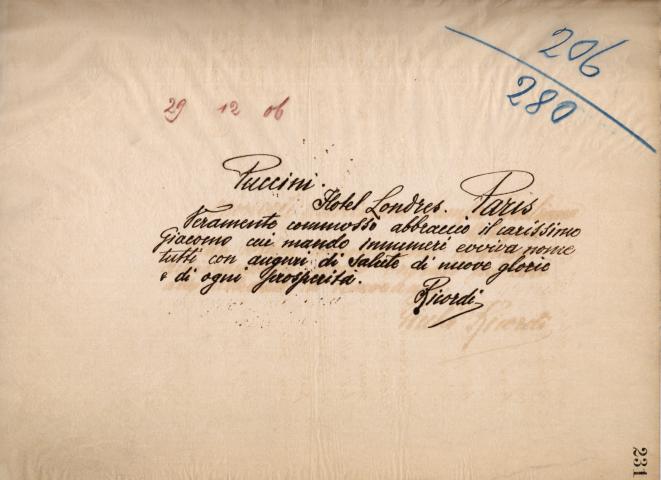 206
280
29 12 06
Puccini.
Hotel Londres. Paris
Veramente commosso abbraccio il carissimo
Giacomo cui mando innumeri evviva nome
tutti con auguri di salute di nuove glorie
e di ogni prosperità.
Ricordi
231